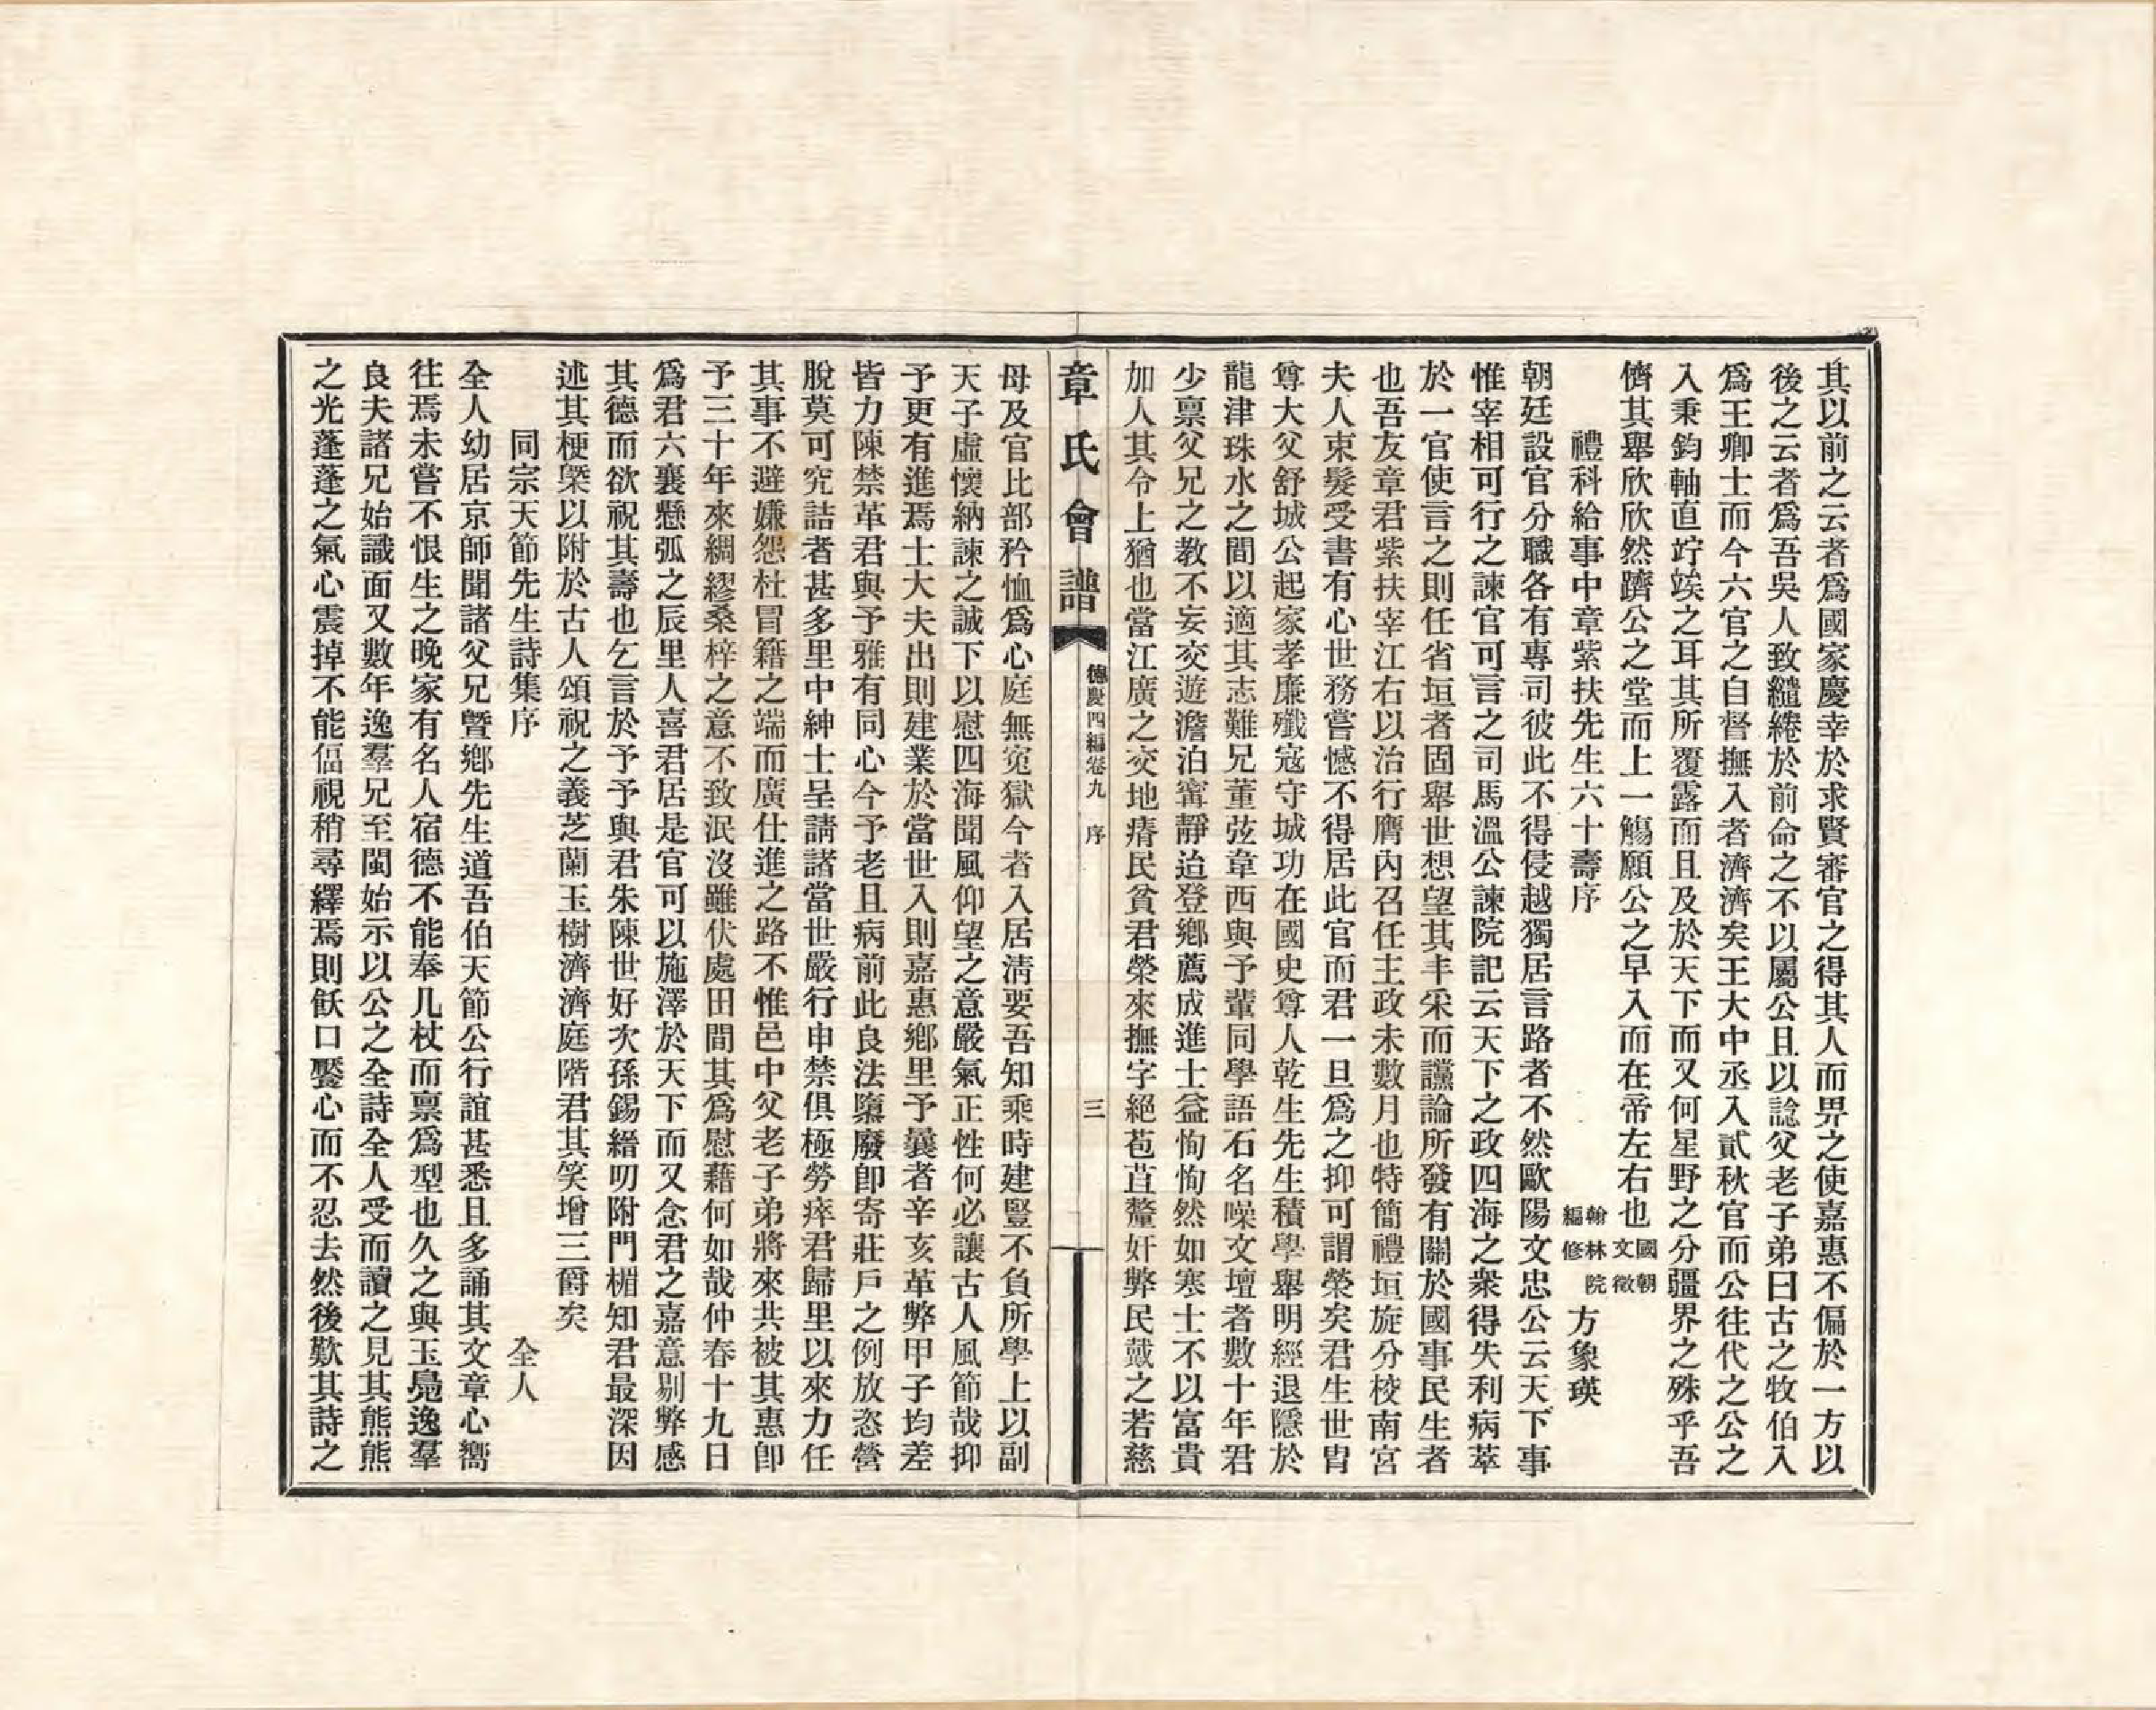 其以前之云者爲國家慶幸於求賢審官之得其人而畀之使嘉惠不偏於一方以
後之云者爲吾吳人致繾綣於前命之不以屬公且以諗父老子弟曰古之牧伯入
爲王卿士而今六官之自督撫入者濟濟矣王大中丞入貳秋官而公往代之公之
入秉鈞軸直竚竢之耳其所覆露而且及於天下而又何星野之分疆界之殊乎吾
儕其舉欣欣然躋公之堂而上一觴願公之早入而在帝左右也國朝文徵
禮科給事中章紫扶先生六十壽序 翰林院編修 方象瑛
朝廷設官分職各有專司彼此不得侵越獨居言路者不然歐陽文忠公云天下事
惟宰相可行之諫官可言之司馬溫公諫院記云天下之政四海之衆得失利病萃
於一官使言之則任省垣者固舉世想望其丰采而讜論所發有關於國事民生者
也吾友章君紫扶宰江右以治行膺內召任主政未數月也特簡禮垣旋分校南宮
夫人束髮受書有心世務嘗憾不得居此官而君一旦爲之抑可謂榮矣君生世胄
尊大父舒城公起家孝廉殲寇守城功在國史尊人乾生先生積學舉明經退隱於
龍津珠水之間以適其志難兄董弦章西與予輩同學語石名噪文壇者數十年君
少禀父兄之教不妄交遊澹泊甯靜迨登鄉薦成進士益恂恂然如寒士不以富貴
加人其令上猶也當江廣之交地瘠民貧君榮來撫字絕苞苴釐奸弊民戴之若慈
章氏會譜 德慶四編卷九 序 三
母及官比部矜恤爲心庭無寃獄今者入居淸要吾知乘時建豎不負所學上以副
天子虛懷納諫之誠下以慰四海聞風仰望之意嚴氣正性何必讓古人風節哉抑
予更有進焉士大夫出則建業於當世入則嘉惠鄉里予曩者辛亥革弊甲子均差
皆力陳禁革君與予雅有同心今予老且病前此良法隳廢卽寄莊戶之例放恣營
脫莫可究詰者甚多里中紳士呈請諸當世嚴行申禁俱極勞瘁君歸里以來力任
其事不避嫌怨杜冒籍之端而廣仕進之路不惟邑中父老子弟將來共被其惠卽
予三十年來綢繆桑梓之意不致泯沒雖伏處田間其爲慰藉何如哉仲春十九日
爲君六襄懸弧之辰里人喜君居是官可以施澤於天下而又念君之嘉意剔弊感
其德而欲祝其壽也乞言於予予與君朱陳世好次孫錫縉叨附門楣知君最深因
述其梗槩以附於古人頌祝之義芝蘭玉樹濟濟庭階君其笑增三爵矣
同宗天節先生詩集序 仝人
仝人幼居京師聞諸父兄曁鄉先生道吾伯天節公行誼甚悉且多誦其文章心嚮
往焉未嘗不恨生之晚家有名人宿德不能奉几杖而禀爲型也久之與玉鳧逸羣
良夫諸兄始識面又數年逸羣兄至閩始示以公之全詩仝人受而讀之見其熊熊
之光蓬蓬之氣心震掉不能偪視稍尋繹焉則飫口饜心而不忍去然後歎其詩之